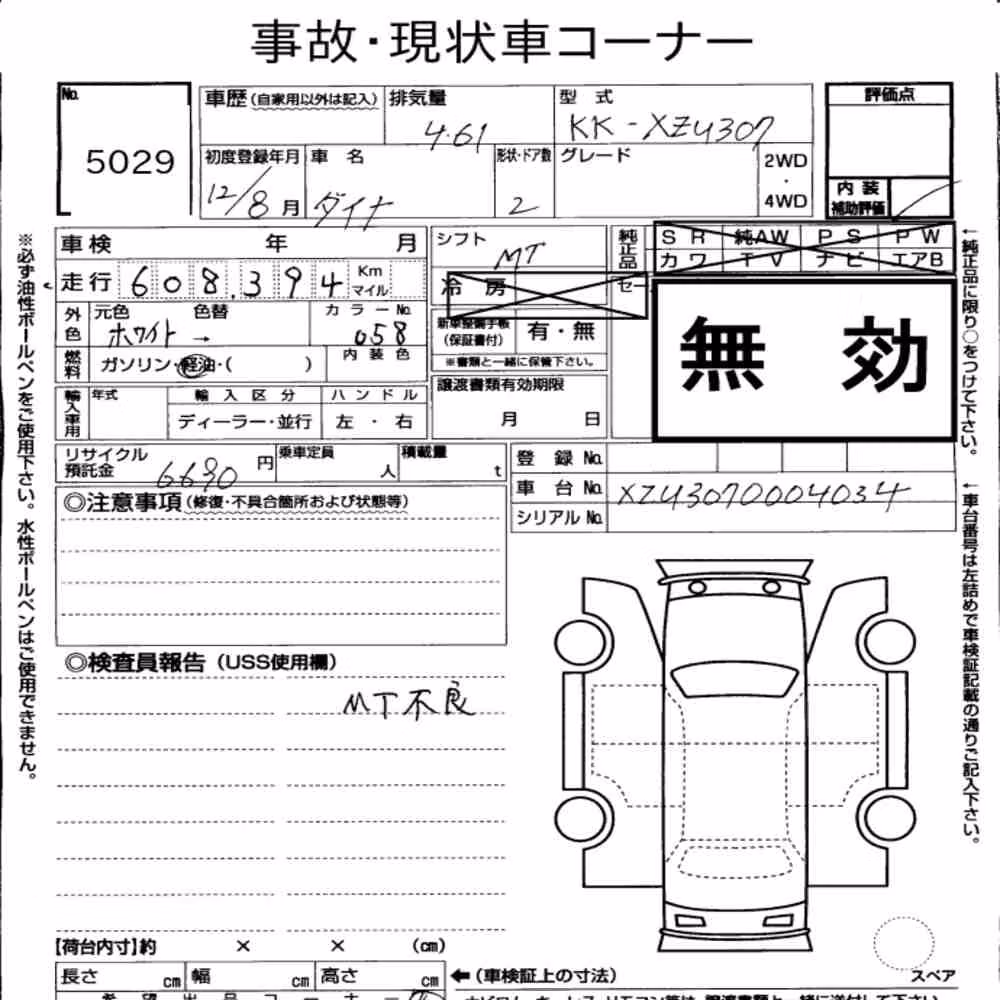 事故・現状車コーナー
No. 5029
車歴(自家用以外は記入) 排気量 4.61 型式 KK-XZU307 評価点
初度登録年月 12/8月 車名 ダイナ 形状・ドア数 2 グレード 2WD・4WD 内装補助評価
車検 年 月 シフト MT 純正品 SR 純AW PS PW
走行 608,394 Km マイル 冷房 カワ TV ナビ エアB
外色 元色 ホワイト → 色替 カラーNo. 058 新車整備手帳(保証書付) 有・無 無効
燃料 ガソリン・軽油・( ) 内装色 ※書類と一緒に保管下さい。
輸入車用 年式 輸入区分 ハンドル 譲渡書類有効期限
ディーラー・並行 左・右 月 日
リサイクル預託金 6690円 乗車定員 人 積載量 t 登録No.
車台No. XZU3070004034
シリアルNo.
◎注意事項(修復・不具合箇所および状態等)
◎検査員報告(USS使用欄)
MT不良
【荷台内寸】約 × × (cm)
長さ cm 幅 cm 高さ cm ←(車検証上の寸法) スペア
※必ず油性ボールペンをご使用下さい。水性ボールペンはご使用できません。
←純正品に限り○をつけて下さい。
←車台番号は左詰めで車検証記載の通りご記入下さい。